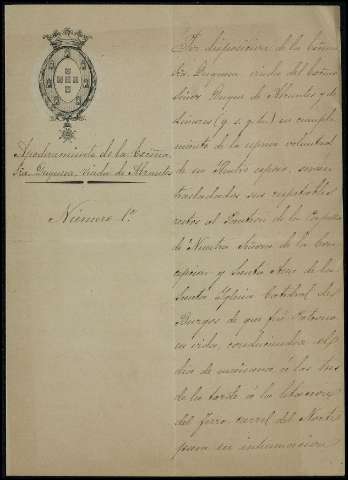 Apoderamiento de la Excma.
Sra. Duquesa viuda de Abrantes
Número 1º
Por disposicion de la Excma.
Sra. Duquesa viuda del Excmo.
Señor Duque de Abrantes y de
Linares (q. s. g. h.) en cumpli-
miento de la espresa voluntad
de su Ilustre esposo, seran
trasladados sus respetables
restos al Panteon de la Capilla
de Nuestra Señora de la Con-
cepcion y Santa Ana de la
Santa Yglesia Catedral de
Burgos de que fué Patrono
en vida, conduciendose el
dia de mañana á las tres
de la tarde á la Estacion
del ferro carril del Norte
para su inhumacion